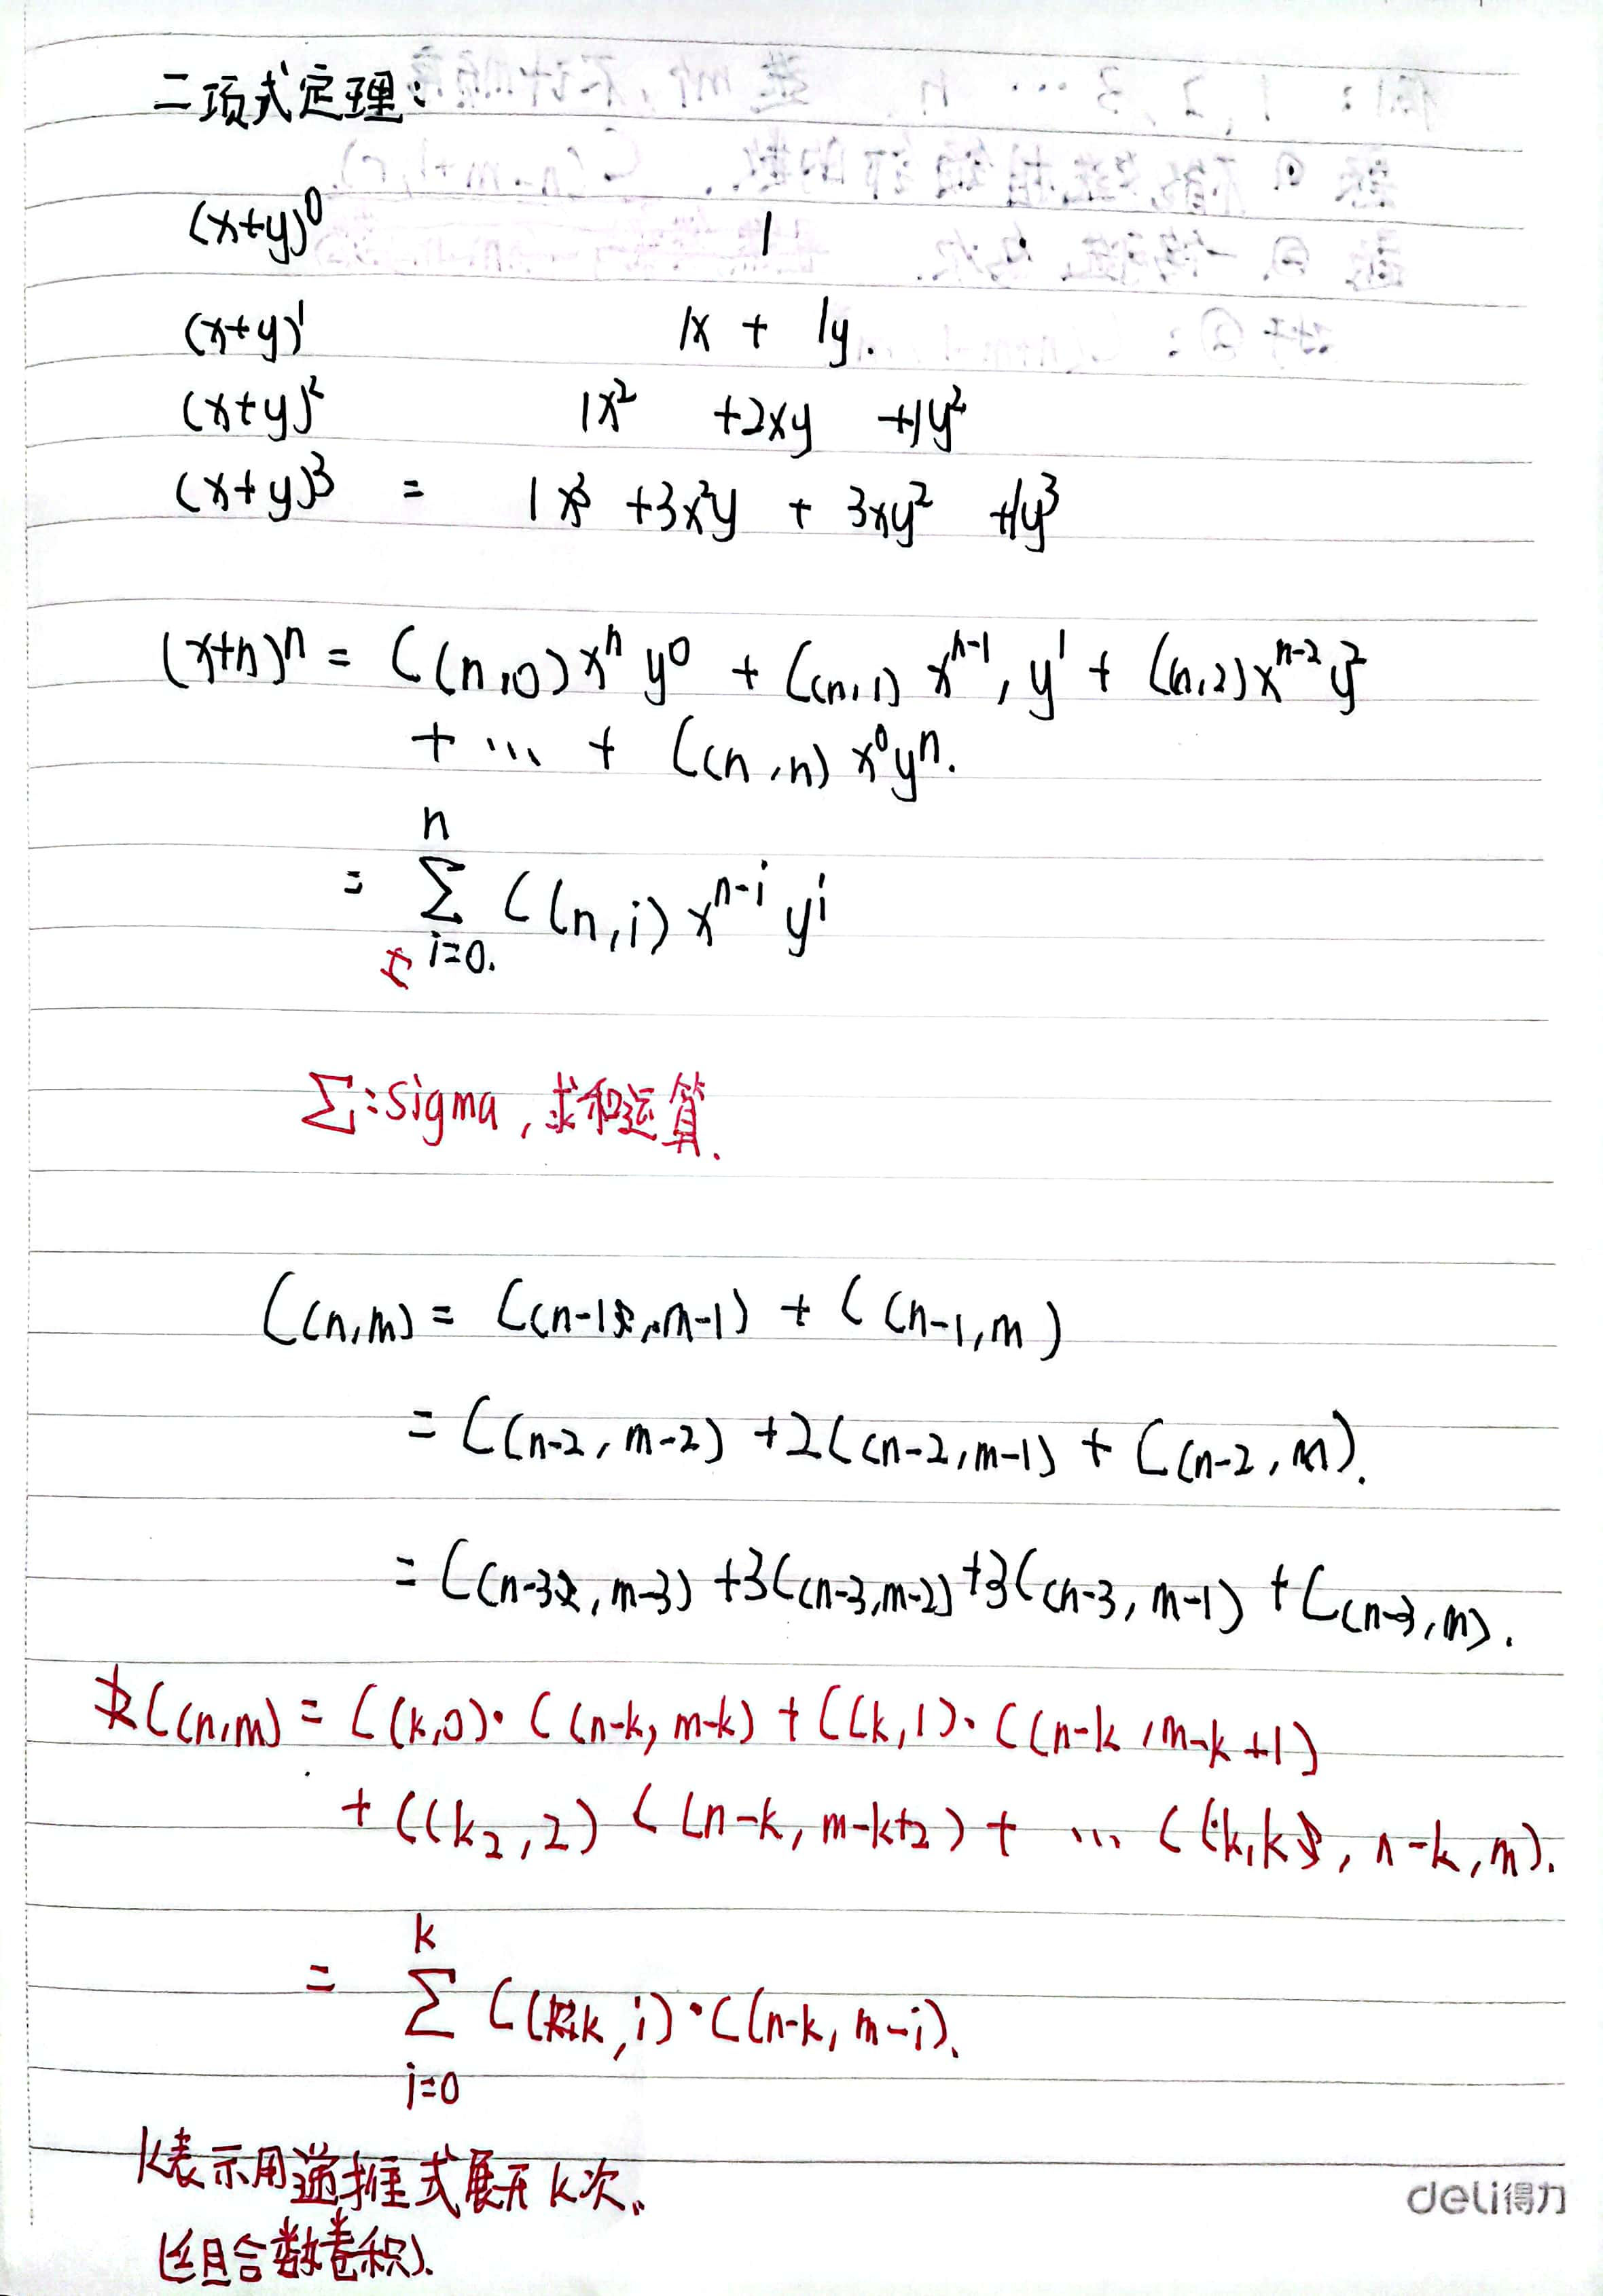 二项式定理:
(x+y)⁰ 1
(x+y)¹ 1x + 1y.
(x+y)² 1x² +2xy +1y²
(x+y)³ = 1x³ +3x²y + 3xy² +1y³
(x+n)ⁿ = C(n,0)xⁿ y⁰ + C(n,1) xⁿ⁻¹, y¹ + C(n,2)xⁿ⁻² y²
+ ... + C(n,n) x⁰yⁿ.
n
= Σ C(n,i) xⁿ⁻ⁱ yⁱ
i=0.
Σ:sigma,求和运算.
C(n,m) = C(n-1,m-1) + C(n-1,m)
= C(n-2,m-2) +2C(n-2,m-1) + C(n-2,m).
= C(n-3,m-3) +3C(n-3,m-2) +3C(n-3,m-1) + C(n-3,m).
C(n,m) = C(k,0)·C(n-k,m-k) + C(k,1)·C(n-k,m-k+1)
+ C(k2,2) C(n-k,m-k+2) + ... C(k,k),n-k,m).
k
= Σ C(k,i)·C(n-k,m-i).
i=0
k表示用递推式展开k次。
(组合数卷积).
deli得力